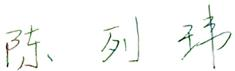 陈列玮